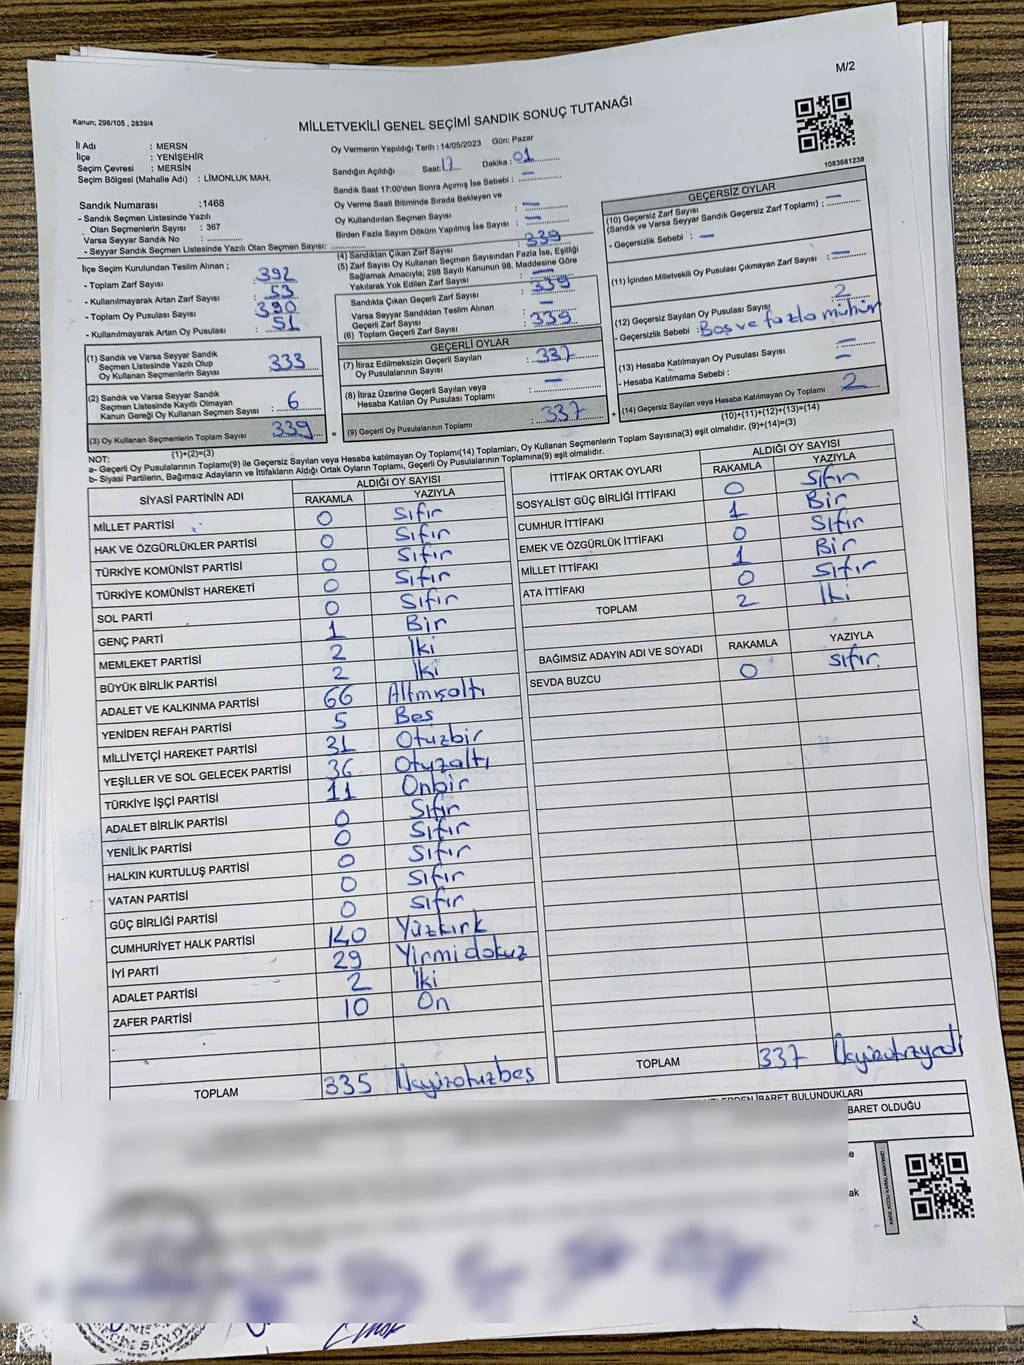 M/2
Kanun; 298/105 , 2839/4
MİLLETVEKİLİ GENEL SEÇİMİ SANDIK SONUÇ TUTANAĞI
1083681238
İl Adı : MERSN
İlçe : YENİŞEHİR
Seçim Çevresi : MERSİN
Seçim Bölgesi (Mahalle Adı) : LİMONLUK MAH.
Sandık Numarası :1468
- Sandık Seçmen Listesinde Yazılı
Olan Seçmenlerin Sayısı : 367
Varsa Seyyar Sandık No :
- Seyyar Sandık Seçmen Listesinde Yazılı Olan Seçmen Sayısı:
Oy Vermenin Yapıldığı Tarih : 14/05/2023 Gün: Pazar
Sandığın Açıldığı Saat: 17 Dakika : 01
Sandık Saat 17:00'den Sonra Açımış İse Sebebi : —
Oy Verme Saati Bitiminde Sırada Bekleyen ve
Oy Kullandırılan Seçmen Sayısı : —
Birden Fazla Sayım Döküm Yapılmış İse Sebebi : —
İlçe Seçim Kurulundan Teslim Alınan ;
- Toplam Zarf Sayısı : 392
- Kullanılmayarak Artan Zarf Sayısı : 53
- Toplam Oy Pusulası Sayısı : 390
- Kullanılmayarak Artan Oy Pusulası : 51
(1) Sandık ve Varsa Seyyar Sandık
Seçmen Listesinde Yazılı Olup
Oy Kullanan Seçmenlerin Sayısı : 333
(2) Sandık ve Varsa Seyyar Sandık
Seçmen Listesinde Kayıtlı Olmayan
Kanun Gereği Oy Kullanan Seçmen Sayısı : 6
(3) Oy Kullanan Seçmenlerin Toplam Sayısı 339
(1)+(2)=(3)
(4) Sandıktan Çıkan Zarf Sayısı : 339
(5) Zarf Sayısı Oy Kullanan Seçmen Sayısından Fazla İse, Eşitliği
Sağlamak Amacıyla; 298 Sayılı Kanunun 98. Maddesine Göre
Yakılarak Yok Edilen Zarf Sayısı : —
Sandıkta Çıkan Geçerli Zarf Sayısı : 339
Varsa Seyyar Sandıktan Teslim Alınan
Geçerli Zarf Sayısı : —
(6) Toplam Geçerli Zarf Sayısı : 339
GEÇERLİ OYLAR
(7) İtiraz Edilmeksizin Geçerli Sayılan
Oy Pusulalarının Sayısı : 337
(8) İtiraz Üzerine Geçerli Sayılan veya
Hesaba Katılan Oy Pusulası Toplamı : —
(9) Geçerli Oy Pusulalarının Toplamı : 337
GEÇERSİZ OYLAR
(10) Geçersiz Zarf Sayısı
(Sandık ve Varsa Seyyar Sandık Geçersiz Zarf Toplamı) : —
- Geçersizlik Sebebi : —
(11) İçinden Milletvekili Oy Pusulası Çıkmayan Zarf Sayısı : —
(12) Geçersiz Sayılan Oy Pusulası Sayısı : 2
- Geçersizlik Sebebi : Boş ve fazla mühür
(13) Hesaba Katılmayan Oy Pusulası Sayısı : —
- Hesaba Katılmama Sebebi : —
(14) Geçersiz Sayılan veya Hesaba Katılmayan Oy Toplamı 2
(10)+(11)+(12)+(13)=(14)
NOT:
a- Geçerli Oy Pusulalarının Toplamı(9) ile Geçersiz Sayılan veya Hesaba katılmayan Oy Toplamı(14) Toplamları, Oy Kullanan Seçmenlerin Toplam Sayısına(3) eşit olmalıdır. (9)+(14)=(3)
b- Siyasi Partilerin, Bağımsız Adayların ve İttifakların Aldığı Ortak Oyların Toplamı, Geçerli Oy Pusulalarının Toplamına(9) eşit olmalıdır.
SİYASİ PARTİNİN ADI ALDIĞI OY SAYISI
RAKAMLA YAZIYLA
MİLLET PARTİSİ 0 Sıfır
HAK VE ÖZGÜRLÜKLER PARTİSİ 0 Sıfır
TÜRKİYE KOMÜNİST PARTİSİ 0 Sıfır
TÜRKİYE KOMÜNİST HAREKETİ 0 Sıfır
SOL PARTİ 0 Sıfır
GENÇ PARTİ 1 Bir
MEMLEKET PARTİSİ 2 İki
BÜYÜK BİRLİK PARTİSİ 2 İki
ADALET VE KALKINMA PARTİSİ 66 Altmışaltı
YENİDEN REFAH PARTİSİ 5 Beş
MİLLİYETÇİ HAREKET PARTİSİ 31 Otuzbir
YEŞİLLER VE SOL GELECEK PARTİSİ 36 Otuzaltı
TÜRKİYE İŞÇİ PARTİSİ 11 Onbir
ADALET BİRLİK PARTİSİ 0 Sıfır
YENİLİK PARTİSİ 0 Sıfır
HALKIN KURTULUŞ PARTİSİ 0 Sıfır
VATAN PARTİSİ 0 Sıfır
GÜÇ BİRLİĞİ PARTİSİ 0 Sıfır
CUMHURİYET HALK PARTİSİ 140 Yüzkırk
İYİ PARTİ 29 Yirmidokuz
ADALET PARTİSİ 2 İki
ZAFER PARTİSİ 10 On
TOPLAM 335 Üçyüzotuzbeş
İTTİFAK ORTAK OYLARI ALDIĞI OY SAYISI
RAKAMLA YAZIYLA
SOSYALİST GÜÇ BİRLİĞİ İTTİFAKI 0 Sıfır
CUMHUR İTTİFAKI 1 Bir
EMEK VE ÖZGÜRLÜK İTTİFAKI 0 Sıfır
MİLLET İTTİFAKI 1 Bir
ATA İTTİFAKI 0 Sıfır
TOPLAM 2 İki
BAĞIMSIZ ADAYIN ADI VE SOYADI RAKAMLA YAZIYLA
SEVDA BUZCU 0 sıfır
TOPLAM 337 Üçyüzotuzyedi
İBARET BULUNDUKLARI
BARET OLDUĞU